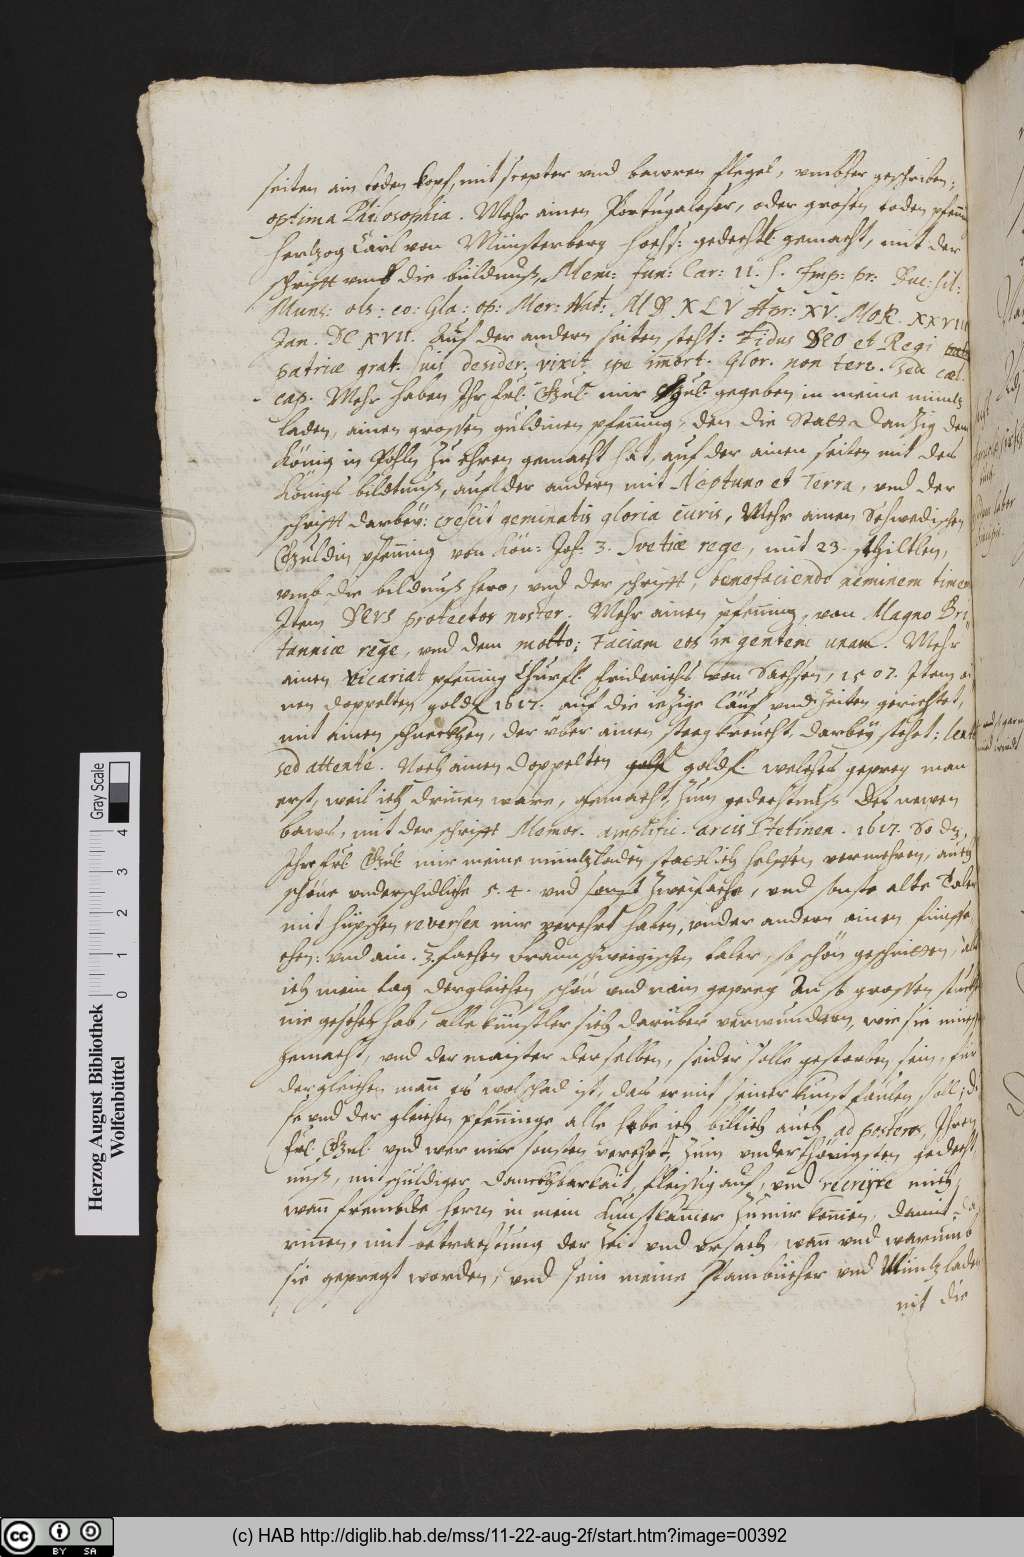 seiten ain todten kopf, mit scepter vnd bawren flegel, vmbher geschriben;
optima Philosophia. Mehr ainen Portugaleser, oder grosen toden pfenning
Hertzog Carls von Münsterberg hochs: gedechtt: gemacht, mit der
schrifft vmb die bildnuß, Mem: Fun: Car: II. S. Imp: pr: Duc: sil:
Muns: ols: co: Gla: op: Mer: Nat: MDXLV Apr: XV. Mor. XXVIII
Jan. DCXVII. Auf der andern seiten steht: Fidus DEO et Regi
patriæ grat. suis desider. vixit, spe immort. Glor. non terr. sed cæl.
cap. Mehr haben Ihr frl. Gnl. mir gegeben in meine müntz
laden, ainen grossen guldinen pfenning, den die Statt Danzig dem
König in Pohln zu ehren gemacht hat, auf der ainen seiten mit des
Königs bildtnuß, auf der andern mit Neptuno et Terra, vnd der
schrifft darbey: crescit geminatis gloria curis, Mehr ainen Schwedischen
Guldin pfenning von Kön: Joh: 3. Svetiæ rege, mit 23. schiltlen,
vmb die bildnuß hero, vnd der schrifft, benefaciendo neminem timen
Item DEVS protector noster. Mehr ainen pfenning, von Magno Bri
tanniæ rege, vnd dem motto; Faciam eos in gentem unam. Mehr
ainen Vicariat pfenning Churfl. Friderichs von Sachsen, 1507. Item ai
nen doppelten goldfl 1617. auf die iezige läuf vnd zeiten gerichtet,
mit ainen schneckhen, der über ainen steeg kreucht, darbey stehet: lente
sed attente. Noch ainen doppelten goldfl. welches gepreg man
erst, weil ich drinnen ware, gemacht, zum gedechtnuß des newen
baws, mit der schrifft Memor. amplific. arcis Stetinen. 1617. So das
Ihr frl. Gnl. mir meine müntzladen stattlich helffen vermehren, auch
schöne vnderschidliche 5. 4. vnd sonst zweifache, vnd sonste alte Taler
mit hüpschen reversen mir verehrt haben, vnder andern ainen fünffa
chen: vnd ain. 3. fachen braunschweigischen taler, so schön geschnitten, als
ich mein tag dergleichen schön vnd rain gepreg In so grossen stuckh
nie gesehen hab, alle künstler sich darüber verwundern, wie sie müess
gemacht, vnd der maister derselben, seider solle gestorben sein, für
dergleichen mann es wol schad ist, das er mit seiner kunst faulen soll; di
se vnd der gleichen pfenninge alle hebe ich billich auch ad posteros, Ihren
frl. Gnl. vnd wer mir sonsten verehrt, zum vnderthönigsten gedecht
nuß, mit schuldiger danckhbarkait, fleissig auf, vnd recreire mich,
wann frembde herrn in mein Kunstkamer zu mir komen, damit
rinnen, mit betrachtung der zeit vnd vrsach, wann vnd warumb
sie gepregt worden, vnd sein meine Stambücher vnd Müntzladen
mit die
Herzog August Bibliothek
Wolfenbüttel
Gray Scale
0 1 2 3 4
(c) HAB http://diglib.hab.de/mss/11-22-aug-2f/start.htm?image=00392